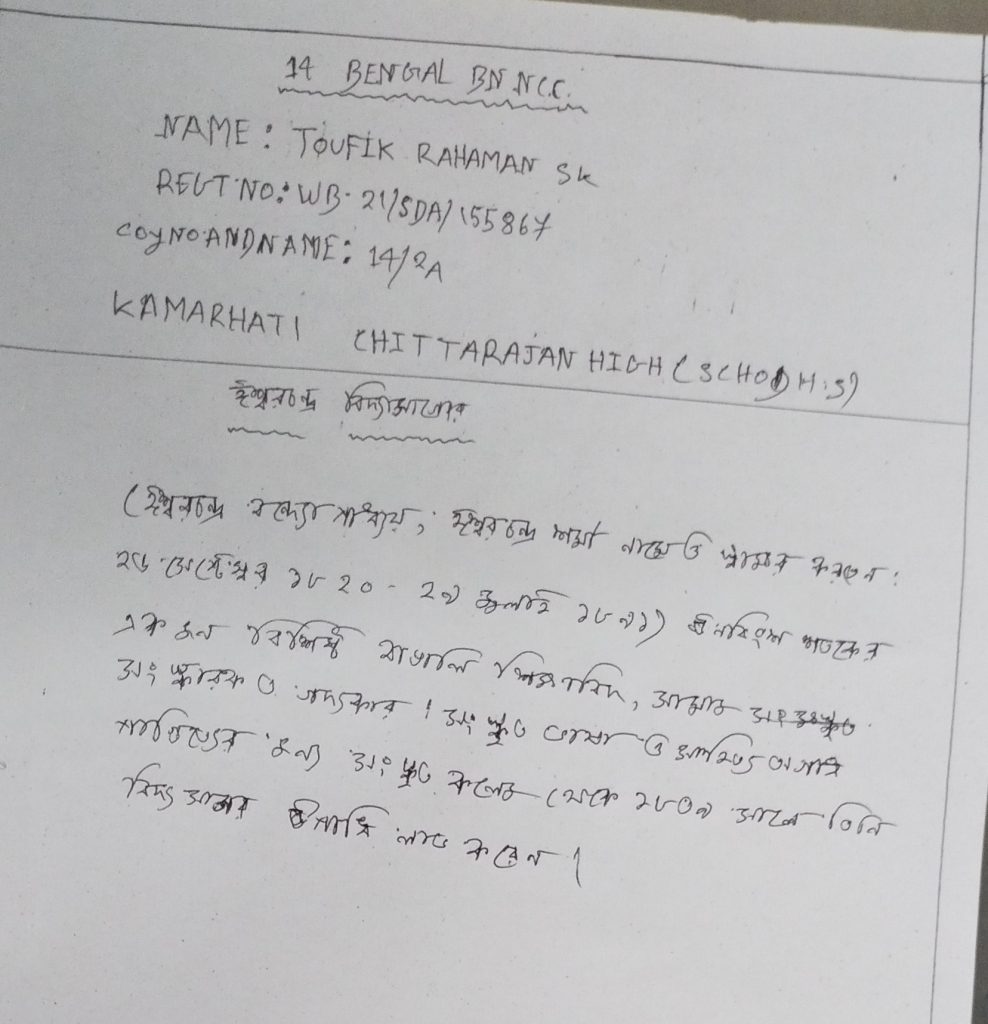 14 BENGAL BN NCC.
NAME: TOUFIK RAHAMAN SK
REGT NO: WB-21/SDA/155867
COY NO AND NAME: 14/2A
KAMARHATI CHITTARAJAN HIGH (SCHOOL H.S)
ঈশ্বরচন্দ্র বিদ্যাসাগর
(ঈশ্বরচন্দ্র বন্দ্যোপাধ্যায়, ঈশ্বরচন্দ্র শর্মা নামেও স্বাক্ষর করতেন:
২৬ সেপ্টেম্বর ১৮২০ - ২৯ জুলাই ১৮৯১) ঊনবিংশ শতকের
একজন বিশিষ্ট বাঙালি শিক্ষাবিদ, সমাজ
সংস্কারক ও গদ্যকার। সংস্কৃত ভাষা ও সাহিত্যে অগাধ
পাণ্ডিত্যের জন্য সংস্কৃত কলেজ থেকে ১৮৩৯ সালে তিনি
বিদ্যাসাগর উপাধি লাভ করেন।